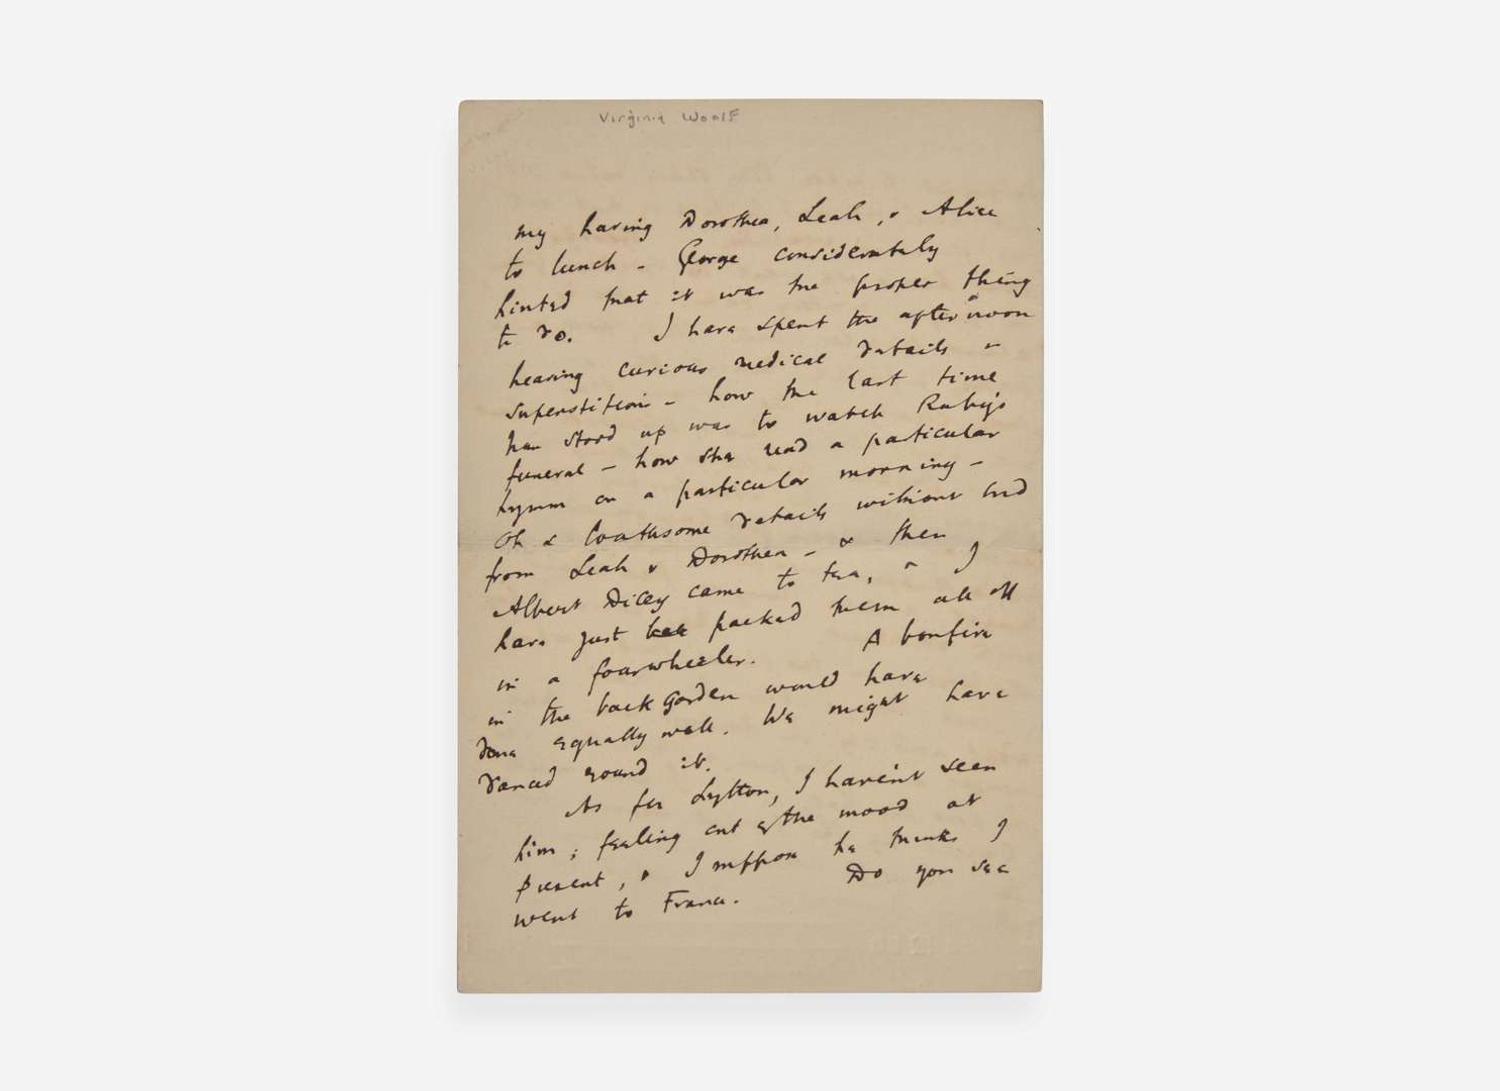 Virginia Woolf
my having Dorothea, Leah, & Alice
to lunch - George considerately
hinted that it was the proper thing
to do. I have spent the afternoon
hearing curious medical details &
superstitions - how the last time
he stood up was to watch Ruby's
funeral - how she read a particular
hymn on a particular morning -
Oh & loathsome details without end
from Leah & Dorothea - & then
Albert Dicey came to tea, & I
have just packed them all off
in a fourwheeler. A bonfire
in the back garden would have
done equally well. We might have
danced round it.
As for Lytton, I haven't seen
him; feeling out of the mood at
present, & I suppose he thinks I
went to France. Do you see